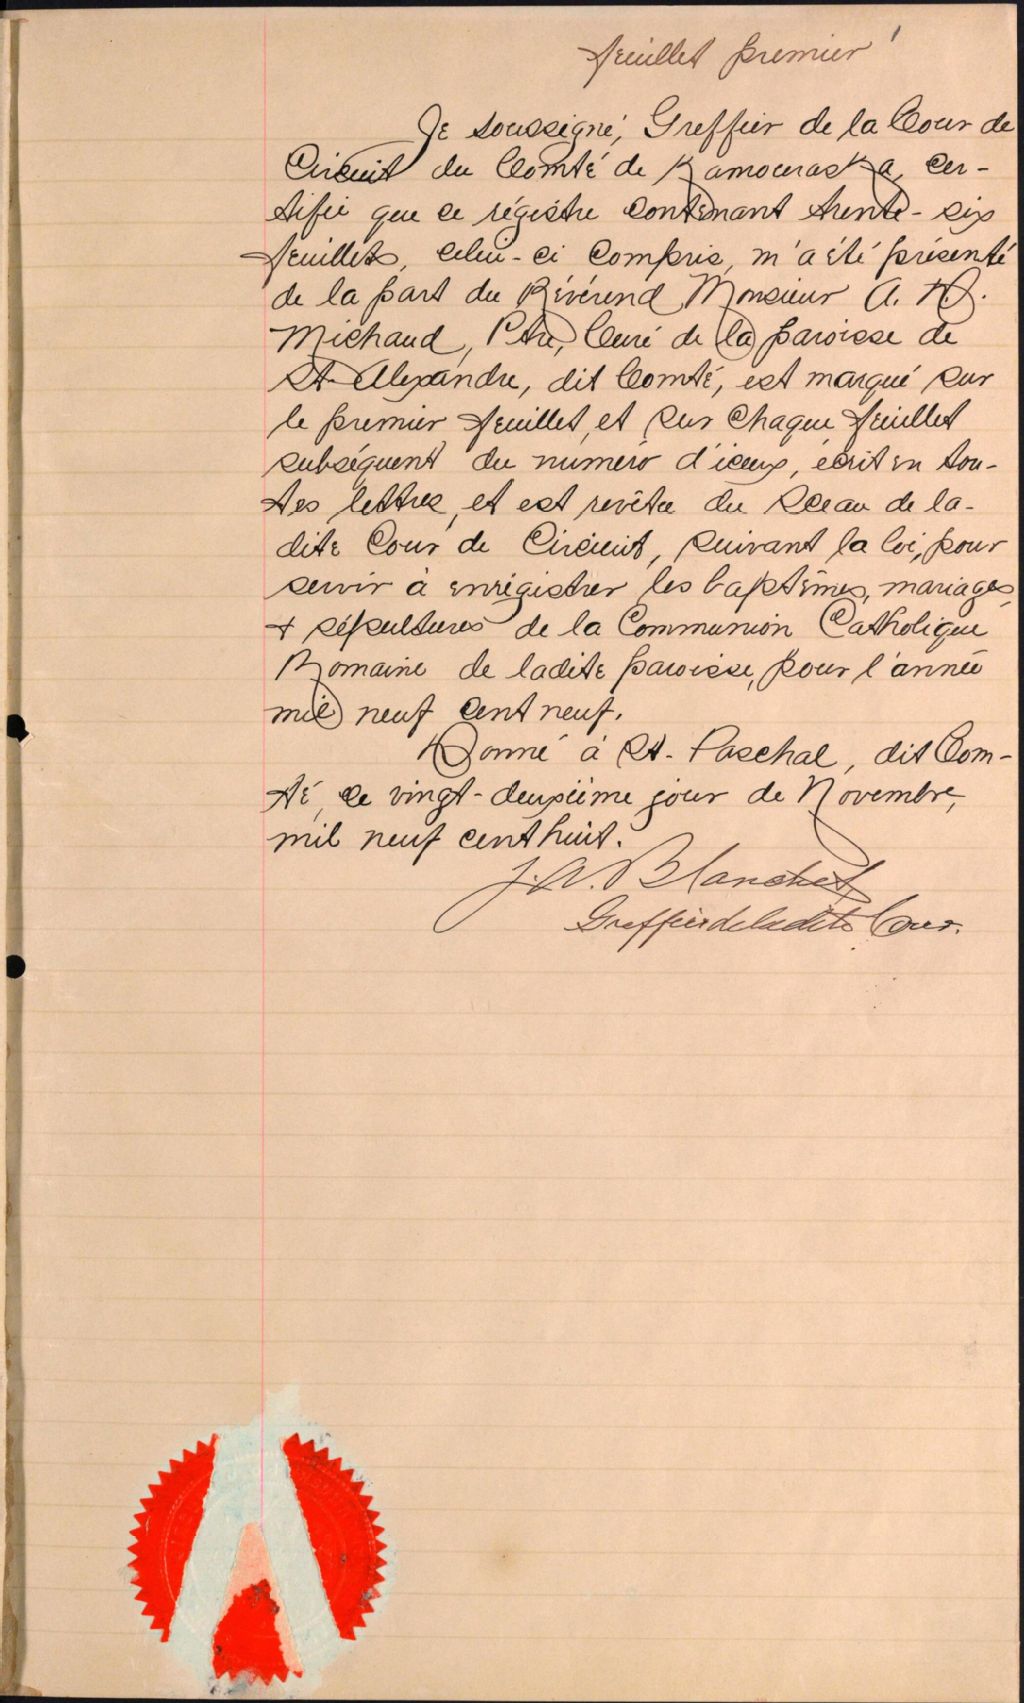 feuillet premier
Je soussigné, Greffier de la Cour de
Circuit du Comté de Kamouraska, cer-
tifie que ce régistre contenant trente-six
feuillets, celui-ci compris, m'a été présenté
de la part du Révérend Monsieur A. D.
Michaud, Ptre, Curé de la paroisse de
St-Alexandre, dit Comté, est marqué sur
le premier feuillet, et sur chaque feuillet
subséquent du numéro d'iceux, écrit en tou-
tes lettres, et est revêtu du sceau de la-
dite Cour de Circuit, suivant la loi, pour
servir à enrégistrer les baptêmes, mariages,
+ sépultures de la Communion Catholique
Romaine de ladite paroisse, pour l'année
mil neuf cent neuf.
Donné à St-Paschal, dit Com-
té, ce vingt-deuxième jour de Novembre,
mil neuf cent huit.
J. A. Blanchet
Greffier de ladite Cour.